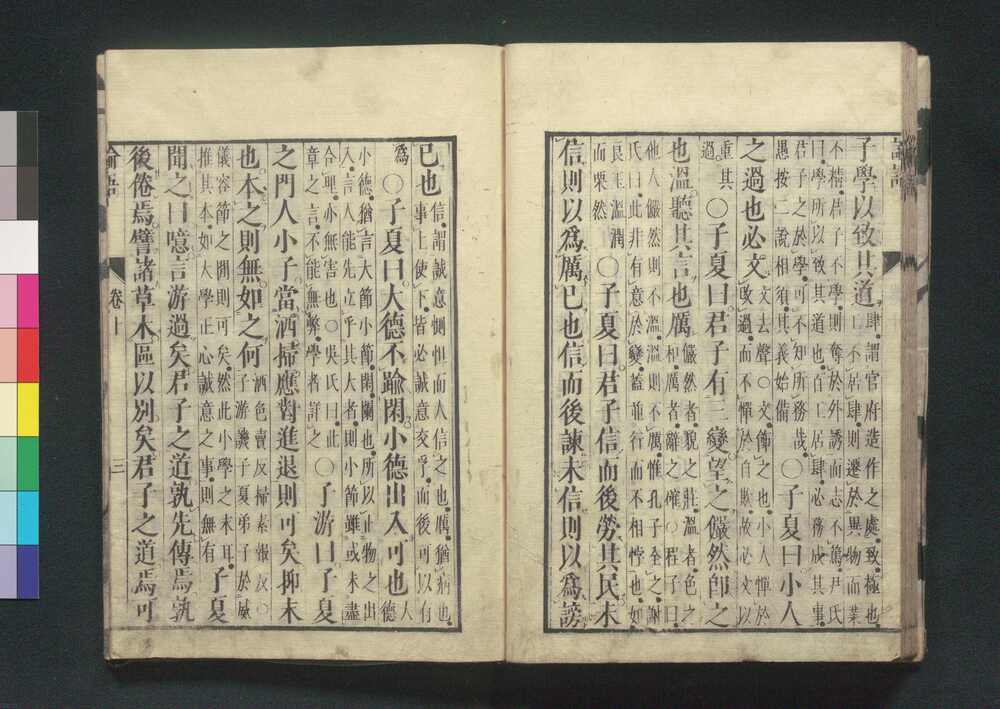 論語
子學以致其道
肆謂官府造作之處致極也
工不居肆則遷於異物而業
不精君子不學則奪於外誘而志不篤尹氏
曰學所以致其道也百工居肆必務成其事
君子之於學可不知所務哉
愚按二說相須其義始備
○子夏曰小人
之過也必文
文去聲○文飾之也小人憚於
改過而不憚於自欺故必文以
重其
過
○子夏曰君子有三變望之儼然卽之
也溫聽其言也厲
儼然者貌之莊溫者色之
和厲者辭之確○程子曰
他人儼然則不溫溫則不厲惟孔子全之謝
氏曰此非有意於變蓋並行而不相悖也如
良玉溫潤
而栗然
○子夏曰君子信而後勞其民未
信則以爲厲已也信而後諫未信則以爲謗
已也
信謂誠意惻怛而人信之也厲猶病也
事上使下皆必誠意交孚而後可以有
爲
○子夏曰大德不踰閑小德出入可也
大德
小德猶言大節小節閑闌也所以止物之出
入言人能先立乎其大者則小節雖或未盡
合理亦無害也○吳氏曰此
章之言不能無弊學者詳之
○子游曰子夏
之門人小子當洒掃應對進退則可矣抑末
也本之則無如之何
洒色賣反掃素報反○
子游譏子夏弟子於威
儀容節之間則可矣然此小學之末耳
推其本如大學正心誠意之事則無有
子夏
聞之曰噫言游過矣君子之道孰先傳焉孰
後倦焉譬諸草木區以別矣君子之道焉可
論語
卷十
三